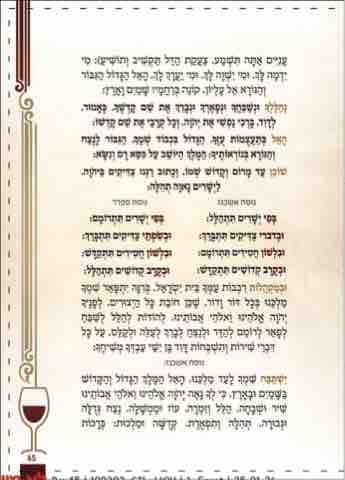 עֲנִיִּים אַתָּה תִשְׁמַע, צַעֲקַת הַדַּל תַּקְשִׁיב וְתוֹשִׁיעַ): מִי
יִדְמֶה לָּךְ, וּמִי יִשְׁוֶה לָּךְ, וּמִי יַעֲרָךְ לָךְ, הָאֵל הַגָּדוֹל הַגִּבּוֹר
וְהַנּוֹרָא אֵל עֶלְיוֹן, קוֹנֵה בְּרַחֲמָיו שָׁמַיִם וָאָרֶץ:
נְהַלֶּלְךָ וּנְשַׁבֵּחֲךָ וּנְפָאֶרְךָ וּנְבָרֵךְ אֶת שֵׁם קָדְשֶׁךָ, כָּאָמוּר,
לְדָוִד, בָּרְכִי נַפְשִׁי אֶת יְהֹוָה, וְכָל קְרָבַי אֶת שֵׁם קָדְשׁוֹ:
הָאֵל בְּתַעֲצֻמוֹת עֻזֶּךָ, הַגָּדוֹל בִּכְבוֹד שְׁמֶךָ, הַגִּבּוֹר לָנֶצַח
וְהַנּוֹרָא בְּנוֹרְאוֹתֶיךָ: הַמֶּלֶךְ הַיּוֹשֵׁב עַל כִּסֵּא רָם וְנִשָּׂא:
שׁוֹכֵן עַד מָרוֹם וְקָדוֹשׁ שְׁמוֹ, וְכָתוּב רַנְּנוּ צַדִּיקִים בַּיהֹוָה,
לַיְשָׁרִים נָאוָה תְהִלָּה:
נוסח אשכנז נוסח ספרד
בְּפִי יְשָׁרִים תִּתְהַלָּל: בְּפִי יְשָׁרִים תִּתְרוֹמָם:
וּבְדִבְרֵי צַדִּיקִים תִּתְבָּרַךְ: וּבְשִׂפְתֵי צַדִּיקִים תִּתְבָּרַךְ:
וּבִלְשׁוֹן חֲסִידִים תִּתְרוֹמָם: וּבִלְשׁוֹן חֲסִידִים תִּתְקַדָּשׁ:
וּבְקֶרֶב קְדוֹשִׁים תִּתְקַדָּשׁ: וּבְקֶרֶב קְדוֹשִׁים תִּתְהַלָּל:
וּבְמַקְהֲלוֹת רִבְבוֹת עַמְּךָ בֵּית יִשְׂרָאֵל, בְּרִנָּה יִתְפָּאֵר שִׁמְךָ
מַלְכֵּנוּ בְּכָל דּוֹר וָדוֹר, שֶׁכֵּן חוֹבַת כָּל הַיְצוּרִים, לְפָנֶיךָ
יְהֹוָה אֱלֹהֵינוּ וֵאלֹהֵי אֲבוֹתֵינוּ, לְהוֹדוֹת לְהַלֵּל לְשַׁבֵּחַ
לְפָאֵר לְרוֹמֵם לְהַדֵּר וּלְנַצֵּחַ לְבָרֵךְ לְעַלֵּה וּלְקַלֵּס, עַל כָּל
דִּבְרֵי שִׁירוֹת וְתִשְׁבְּחוֹת דָּוִד בֶּן יִשַׁי עַבְדְּךָ מְשִׁיחֶךָ:
נוסח אשכנז:
יִשְׁתַּבַּח שִׁמְךָ לָעַד מַלְכֵּנוּ, הָאֵל הַמֶּלֶךְ הַגָּדוֹל וְהַקָּדוֹשׁ
בַּשָּׁמַיִם וּבָאָרֶץ, כִּי לְךָ נָאֶה יְהֹוָה אֱלֹהֵינוּ וֵאלֹהֵי אֲבוֹתֵינוּ
שִׁיר וּשְׁבָחָה, הַלֵּל וְזִמְרָה, עֹז וּמֶמְשָׁלָה, נֶצַח גְּדֻלָּה
וּגְבוּרָה, תְּהִלָּה וְתִפְאֶרֶת, קְדֻשָּׁה וּמַלְכוּת, בְּרָכוֹת
45